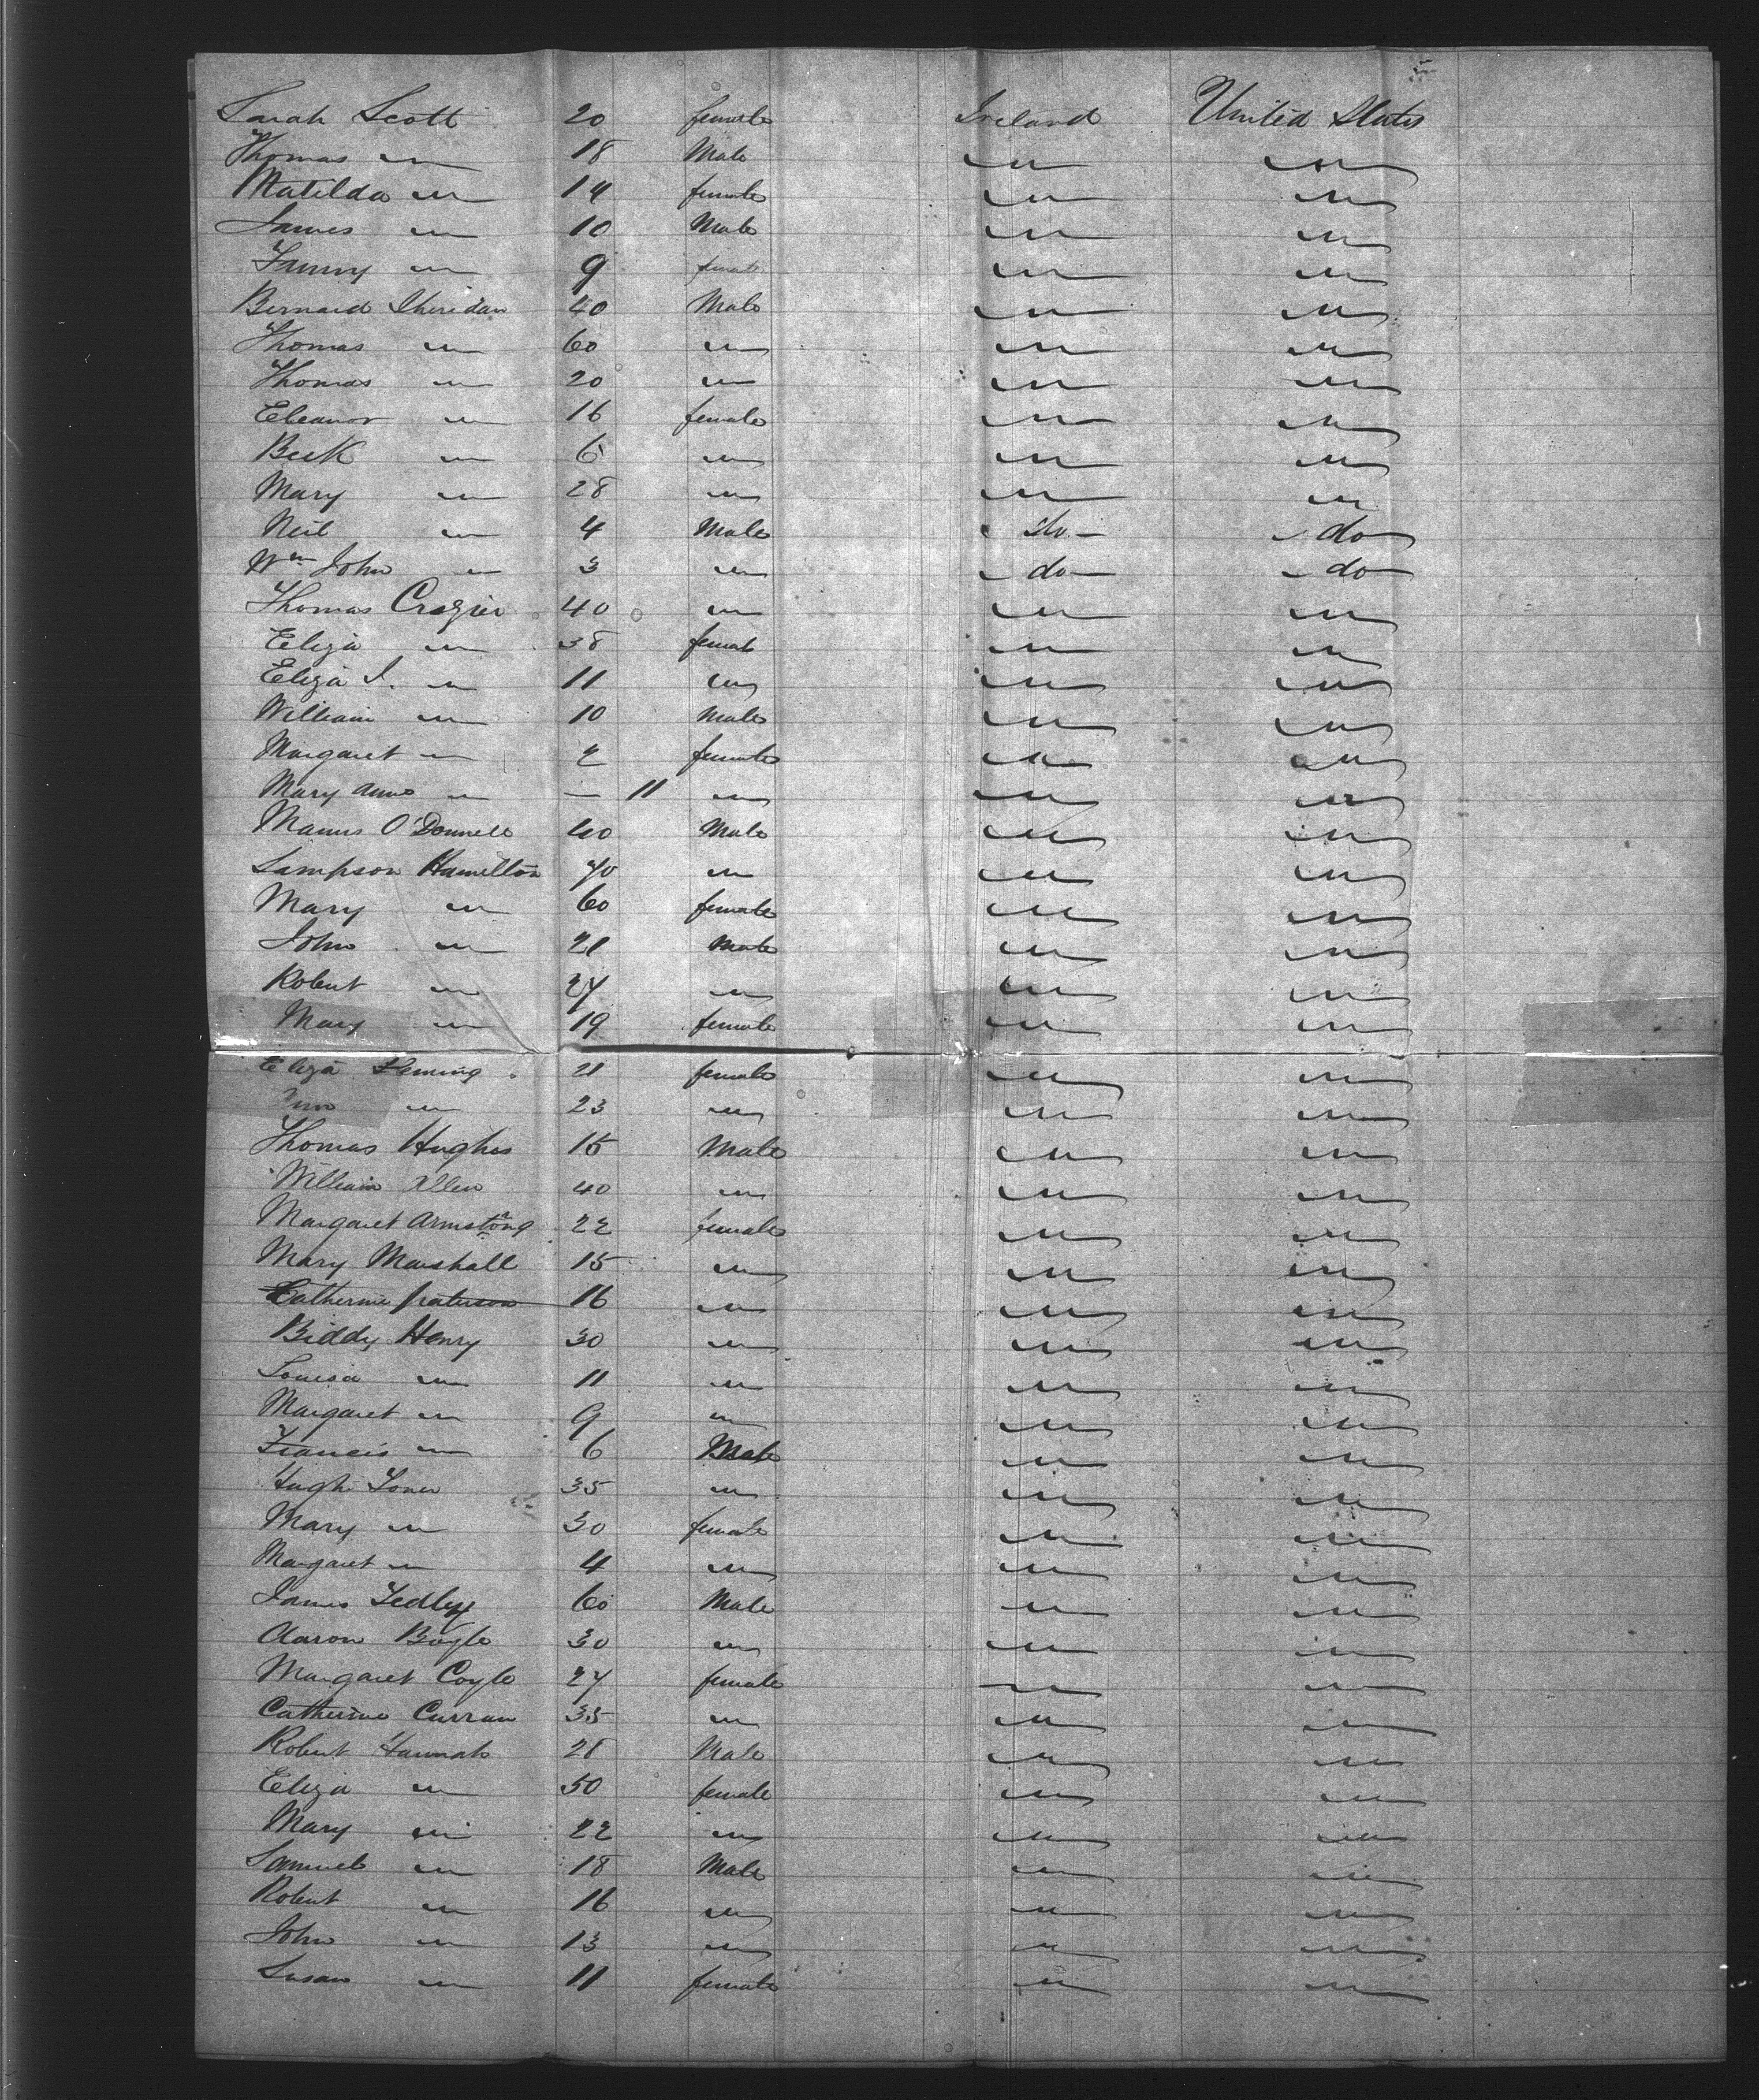 Sarah Scott 20 female Ireland United States
Thomas " 18 Male " "
Matilda " 14 female " "
James " 10 Male " "
Fanny " 9 female " "
Bernard Sheridan 40 Male " "
Thomas " 60 " " "
Thomas " 20 " " "
Eleanor " 16 female " "
Beck " 6 " " "
Mary " 28 " " "
Neil " 4 Male do do
Wm John " 3 " do do
Thomas Crozier 40 " " "
Eliza " 38 female " "
Eliza J. " 11 " " "
William " 10 Male " "
Margaret " 2 female " "
Mary Anne " — 11 " " "
Manus O'Donnell 40 Male " "
Sampson Hamilton 70 " " "
Mary " 60 female " "
John " 21 Male " "
Robert " 24 " " "
Mary " 19 female " "
Eliza Fleming 21 female " "
Ann " 23 " " "
Thomas Hughes 15 Male " "
William Allen 40 " " "
Margaret Armstong 22 female " "
Mary Marshall 15 " " "
Catherine Paterson 16 " " "
Biddy Henry 30 " " "
Louisa " 11 " " "
Margaret " 9 " " "
Francis " 6 Male " "
Hugh Toner 35 " " "
Mary " 30 female " "
Margaret " 4 " " "
James Tedley 60 Male " "
Aaron Boyle 30 " " "
Margaret Coyle 24 female " "
Catherine Curran 35 " " "
Robert Hannah 28 Male " "
Eliza " 50 female " "
Mary " 22 " " "
Samuel " 18 Male " "
Robert " 16 " " "
John " 13 " " "
Susan " 11 female " "